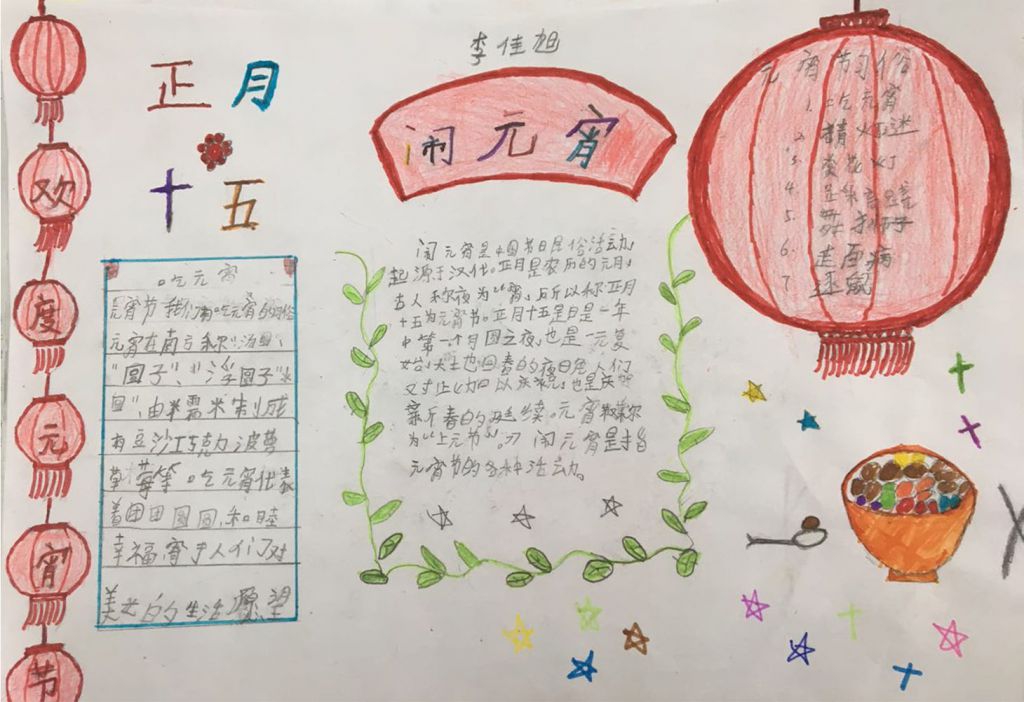 欢
度
元
宵
节
正月
十五
李佳旭
闹元宵
吃元宵
元宵节我们有吃元宵的习俗
元宵在南方称"汤圆"、
"圆子"、"浮圆子"水
圆",由半需米制成
有豆沙巧克力菠萝
草莓等。吃元宵代表
着团团圆圆,和睦
幸福,寄于人们对
美好的生活愿望
闹元宵是中国节日民俗活动,
起源于汉代。正月是农历的元月,
古人称夜为"宵,所以称正月
十五为元宵节。正月十五是日是一年
中第一个月圆之夜,也是一元复
始,大土也回春的夜日晚,人们
以庆祝,也是庆
新春的延续。元宵
为"上元节"。闹元宵是指
元宵节的各种活动。
元宵节习俗
1. 吃元宵
2. 猜灯迷
3. 灯
4.
5.
6. 走百病
7 逐鼠